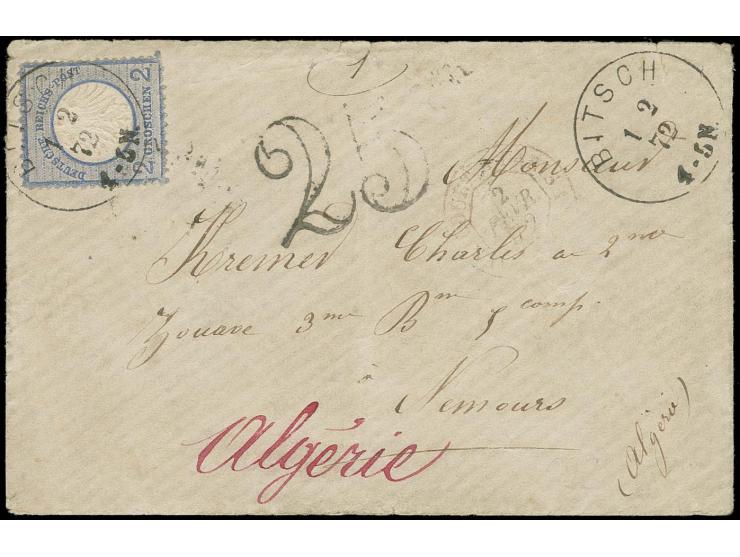 DEUTSCHE REICHS-POST
2 GROSCHEN 2
BITSCH
1 2
72
4-5N
1
25
BITSCH
1 2
72
4-5N
2
FEVR.
72
Monsieur
Kremer Charles au 2me
Zouave 3me Bm 5 comp.
à Nemours
Algérie
(Algérie)